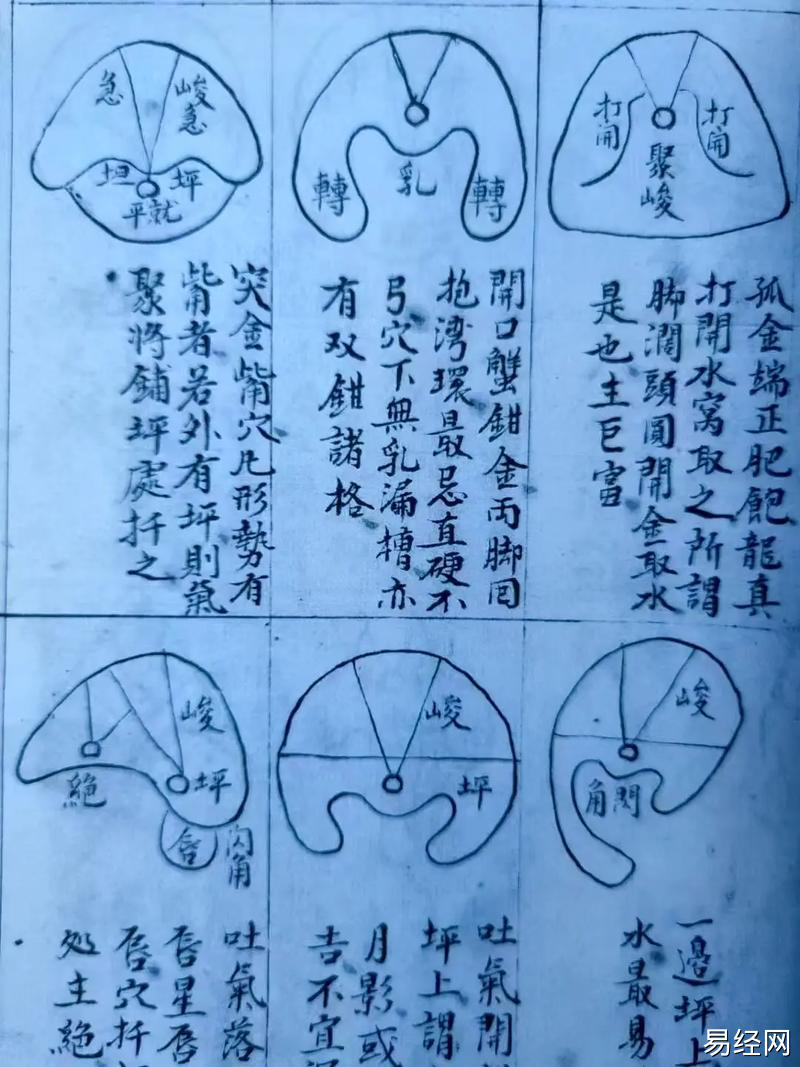 打開
打開
聚峻
孤金端正肥飽龍真
打開水窩取之所謂
脚濶頭圓開金取水
是也主巨富
轉
乳
轉
開口蟹鉗金両脚囘
抱湾環最忌直硬不
弓穴下無乳漏槽亦
有双鉗諸格
峻急
急
坪
坦
就平
突金觜穴凡形勢有
觜者若外有坪則氣
聚将鋪坪處扦之
峻
閃角
一邊坪上
水最易
峻
坪
吐氣開
坪上謂
月影或
吉不宜
峻
坪
絕
唇
闪角
吐氣落
唇星唇
唇穴扦
处主絕
易经网